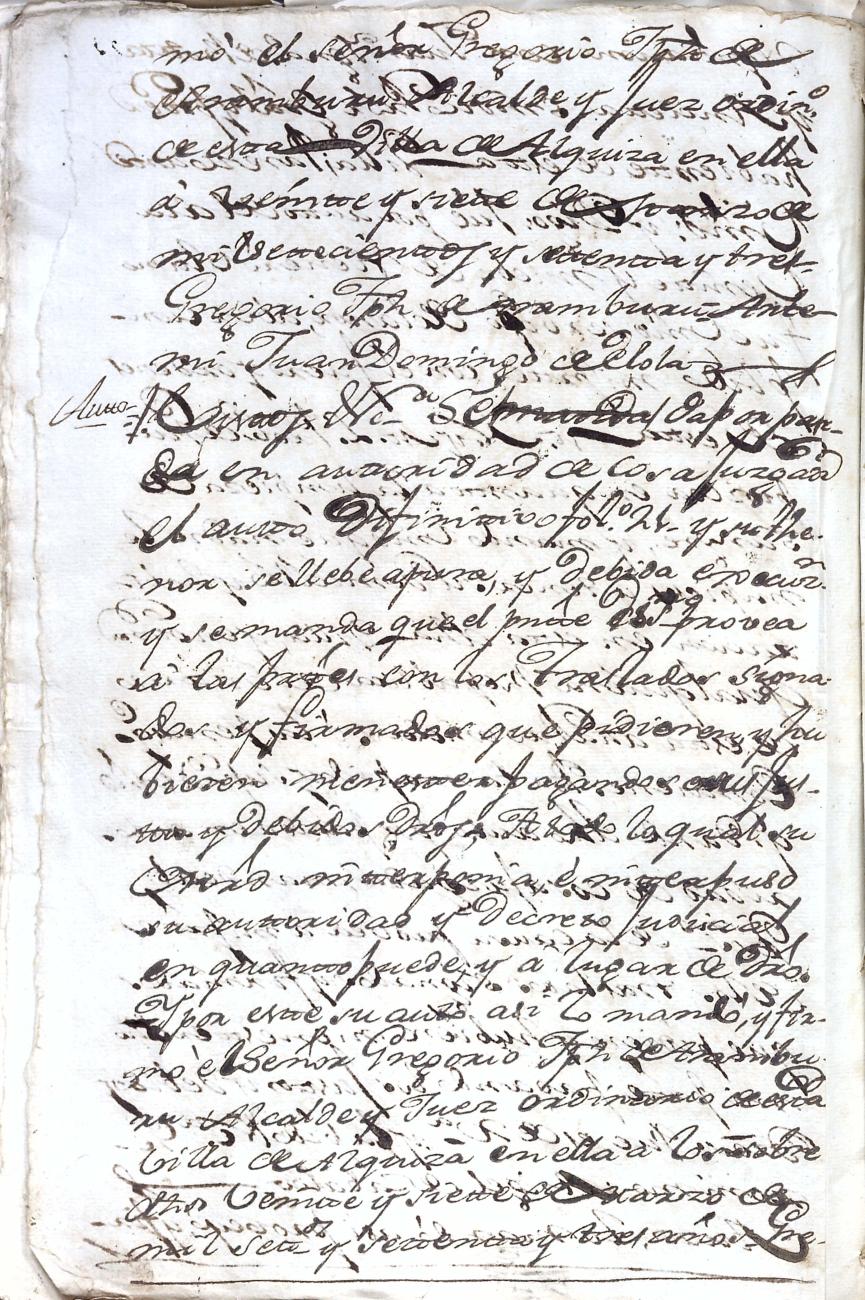 mó el señor Gregorio Jph de
Aramburu Alcalde y Juez ordin.º
de esta Villa de Alquiza en ella
á veinte y siete de Marzo de
mil setecientos y settenta y tres-
Gregorio Jph de Aramburu = Ante
mi Juan Domingo de Elola
Autto- Vistos &c.ª Se da por pas-
da en autoridad de cosa Juzgada
el auto Difinitivo fol.º 21- y su the-
nor se llebe apura, y debida execuz.n
y se manda que el pnte Ess.no provea
a las partes con los Traslados signa-
dos y firmados que pidieren y hu
bieren menester pagando sus jus-
tos y Debidos Dros. A todo lo qual su
Mrd interponia é interpuso
su autoridad y Decreto Judicial
en quanto puede, y a lugar de Dro.
Y por este su auto asi lo mandó, y fir-
mó el Señor Gregorio Jph de Arambu
ru Alcalde y Juez ordinario de esta
Villa de Alquiza en ella a los sobre
dhos Veinte y siete de Marzo de
mil setᵒˢ y setenta y tres años= Gre-